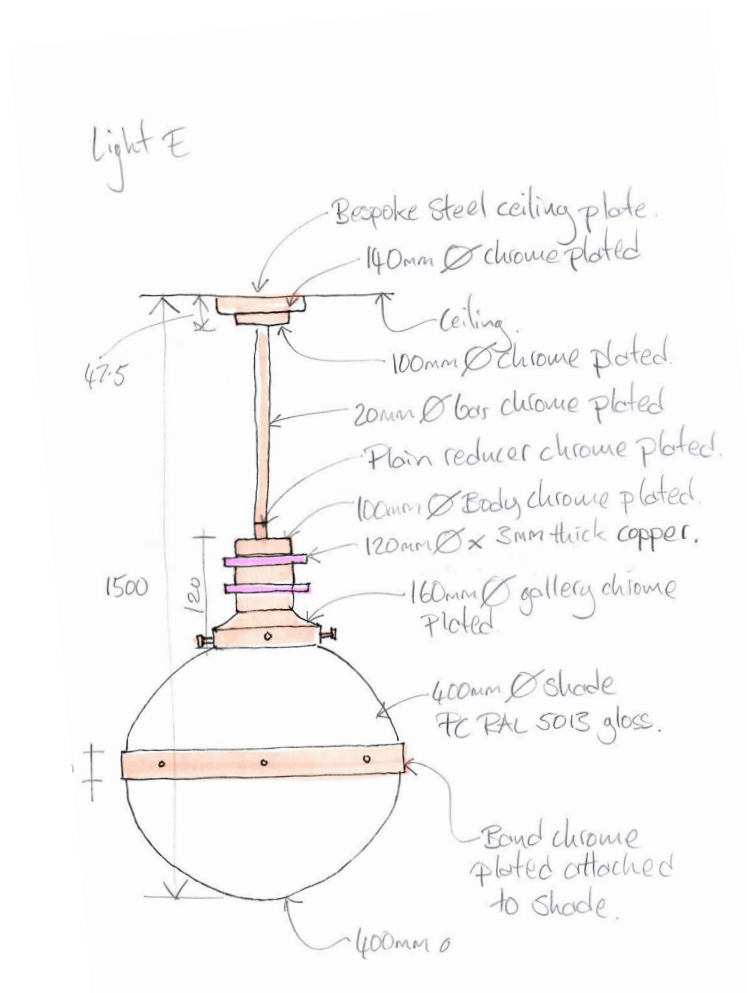 Light E
Bespoke Steel ceiling plate.
140mm Ø chrome plated
Ceiling.
47.5
100mm Ø chrome plated.
20mm Ø bar chrome plated
Plain reducer chrome plated.
100mm Ø Body chrome plated.
120mm Ø x 3mm thick copper.
1500
120
160mm Ø gallery chrome
Plated
400mm Ø shade
PC RAL 5013 gloss.
Band chrome
plated attached
to shade.
400mm o